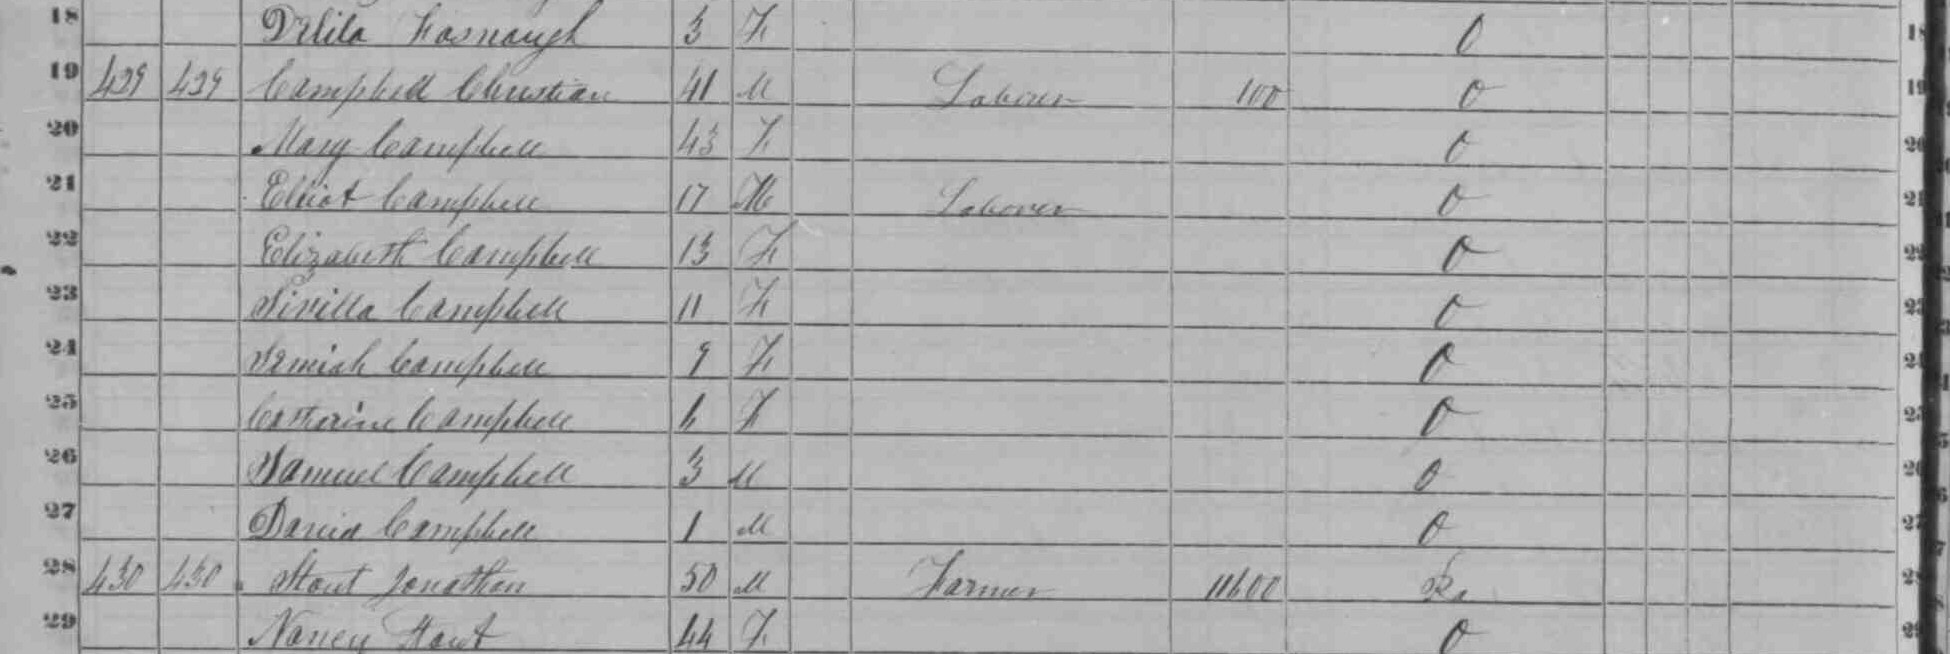 18 Delila Fasnaugh 3 F O 18
19 429 429 Campbell Christian 41 M Laborer 100 O 19
20 Mary Campbell 43 F O 20
21 Eliot Campbell 17 M Laborer O 21
22 Elizabeth Campbell 13 F O 22
23 Sivilla Campbell 11 F O 23
24 Campbell 9 F O 24
25 Catherine Campbell 6 F O 25
26 Samuel Campbell 3 M O 26
27 David Campbell 1 M O 27
28 430 430 Stout Jonathan 50 M Farmer 11600 28
29 Nancy Stout 44 F O 29